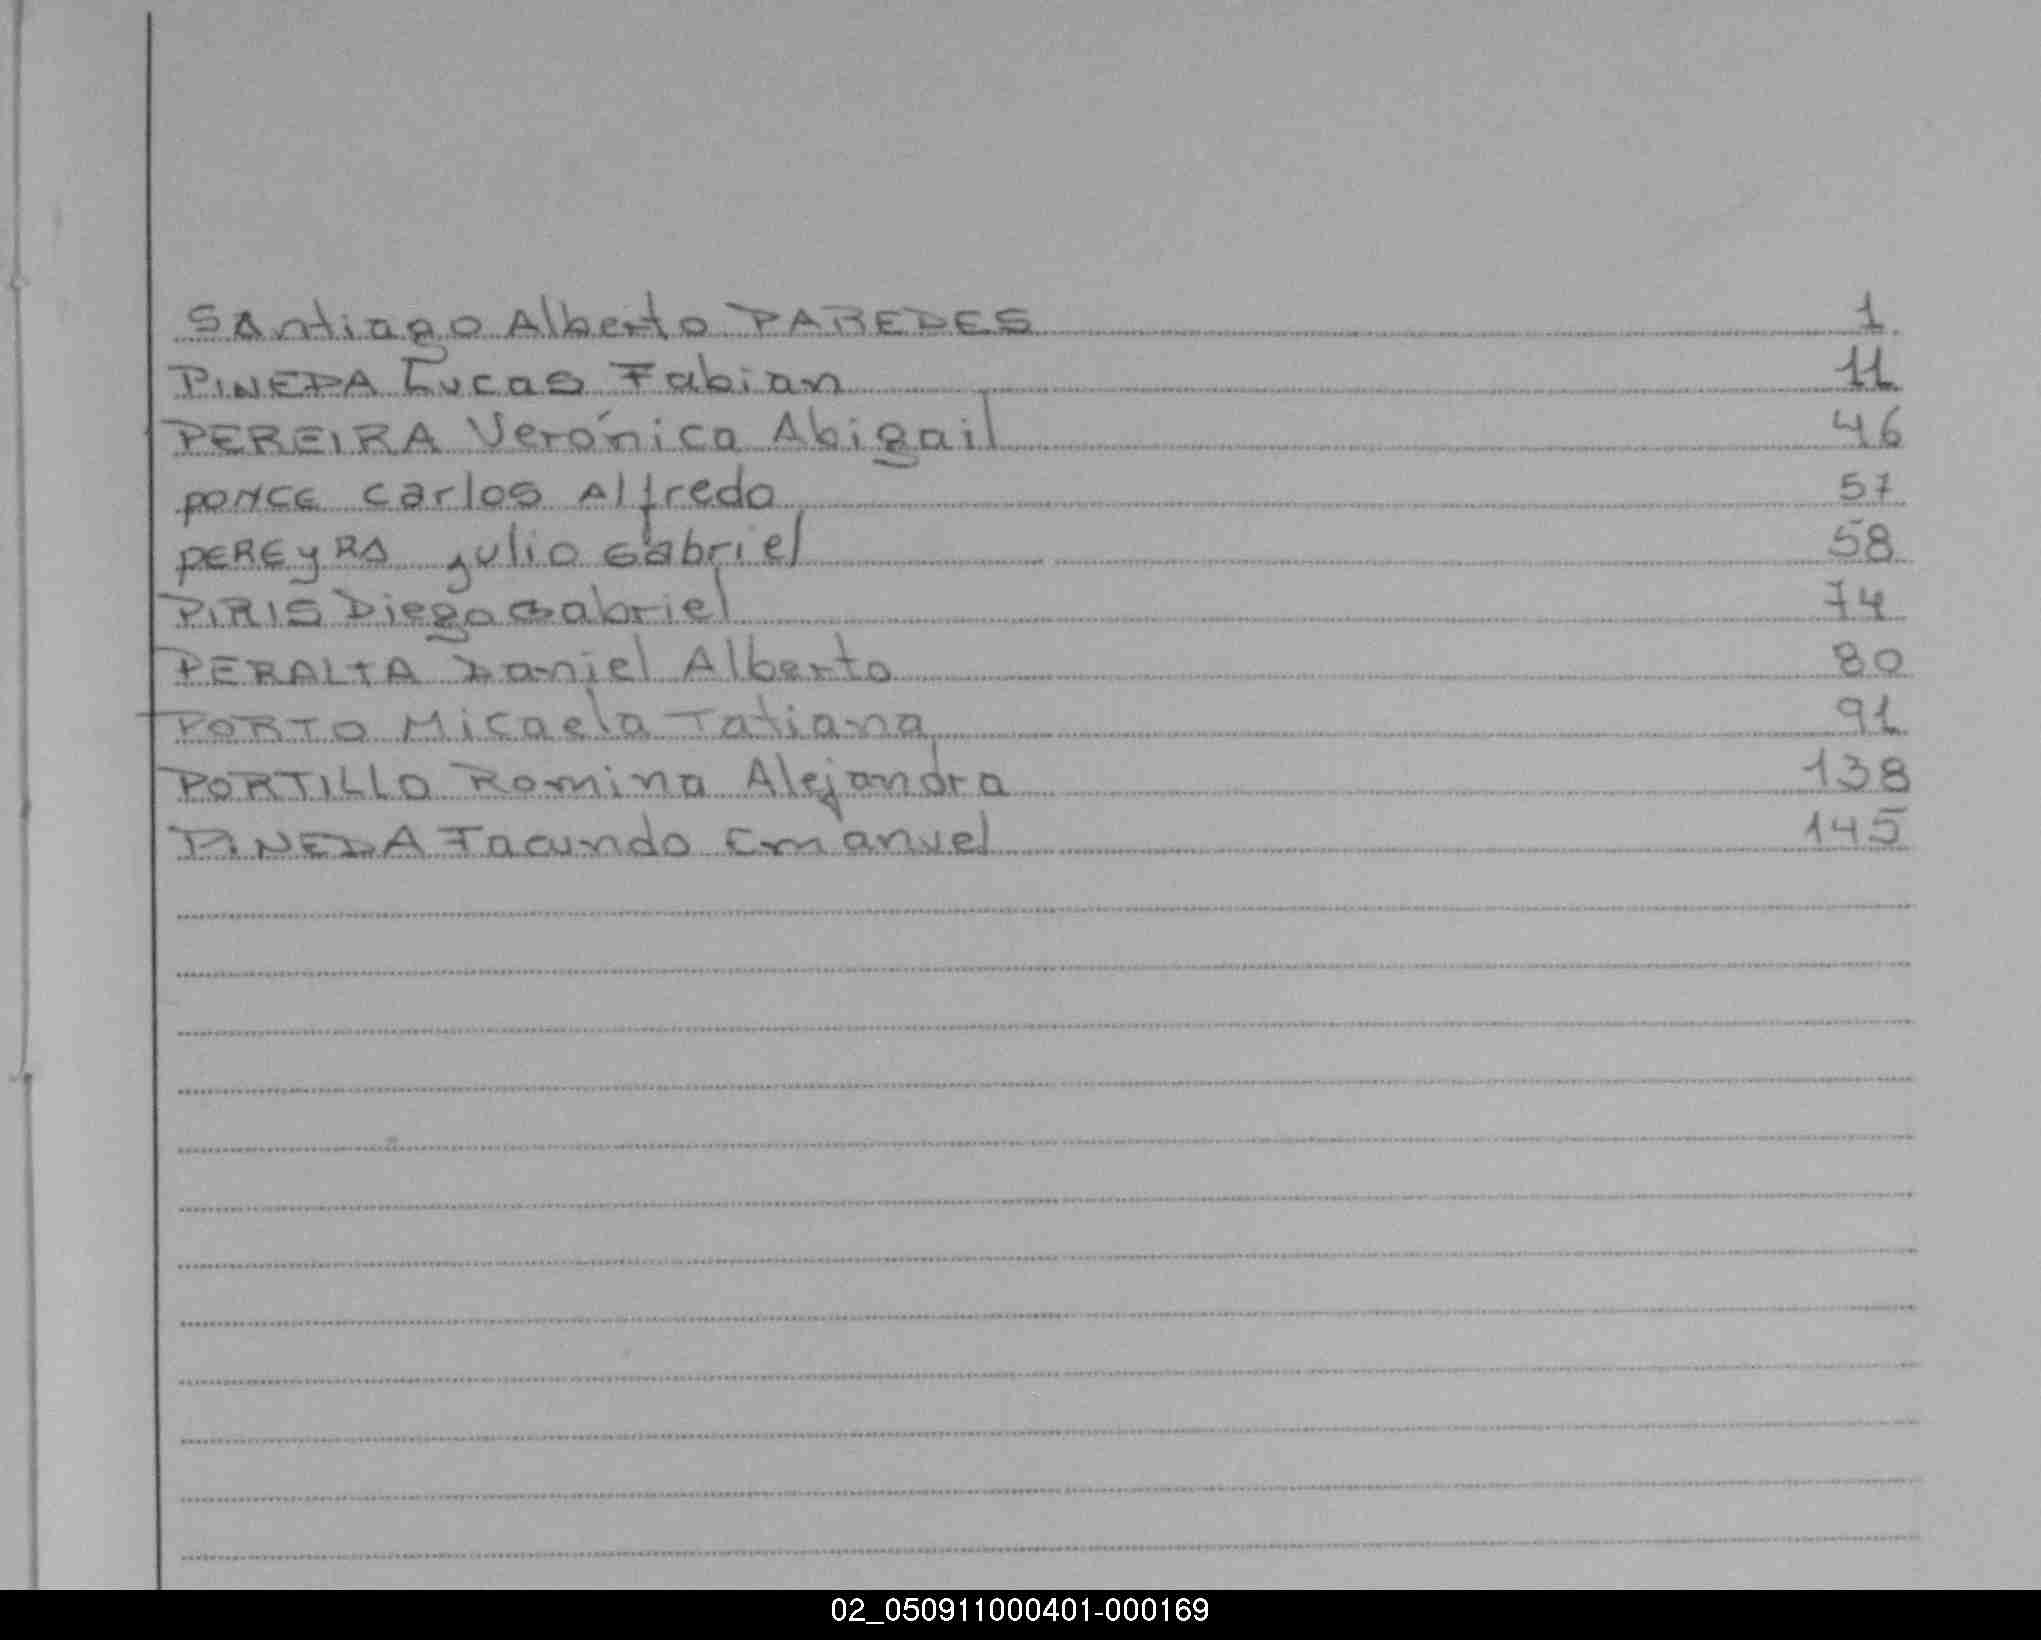 Santiago Alberto PAREDES 1
PINEDA Lucas Fabian 11
PEREIRA Verónica Abigail 46
PONCE Carlos Alfredo 57
PEREYRA Julio Gabriel 58
PIRIS Diego Gabriel 74
PERALTA Daniel Alberto 80
PORTO Micaela Tatiana 91
PORTILLO Romina Alejandra 138
PINEDA Facundo Emanuel 145
02_050911000401-000169